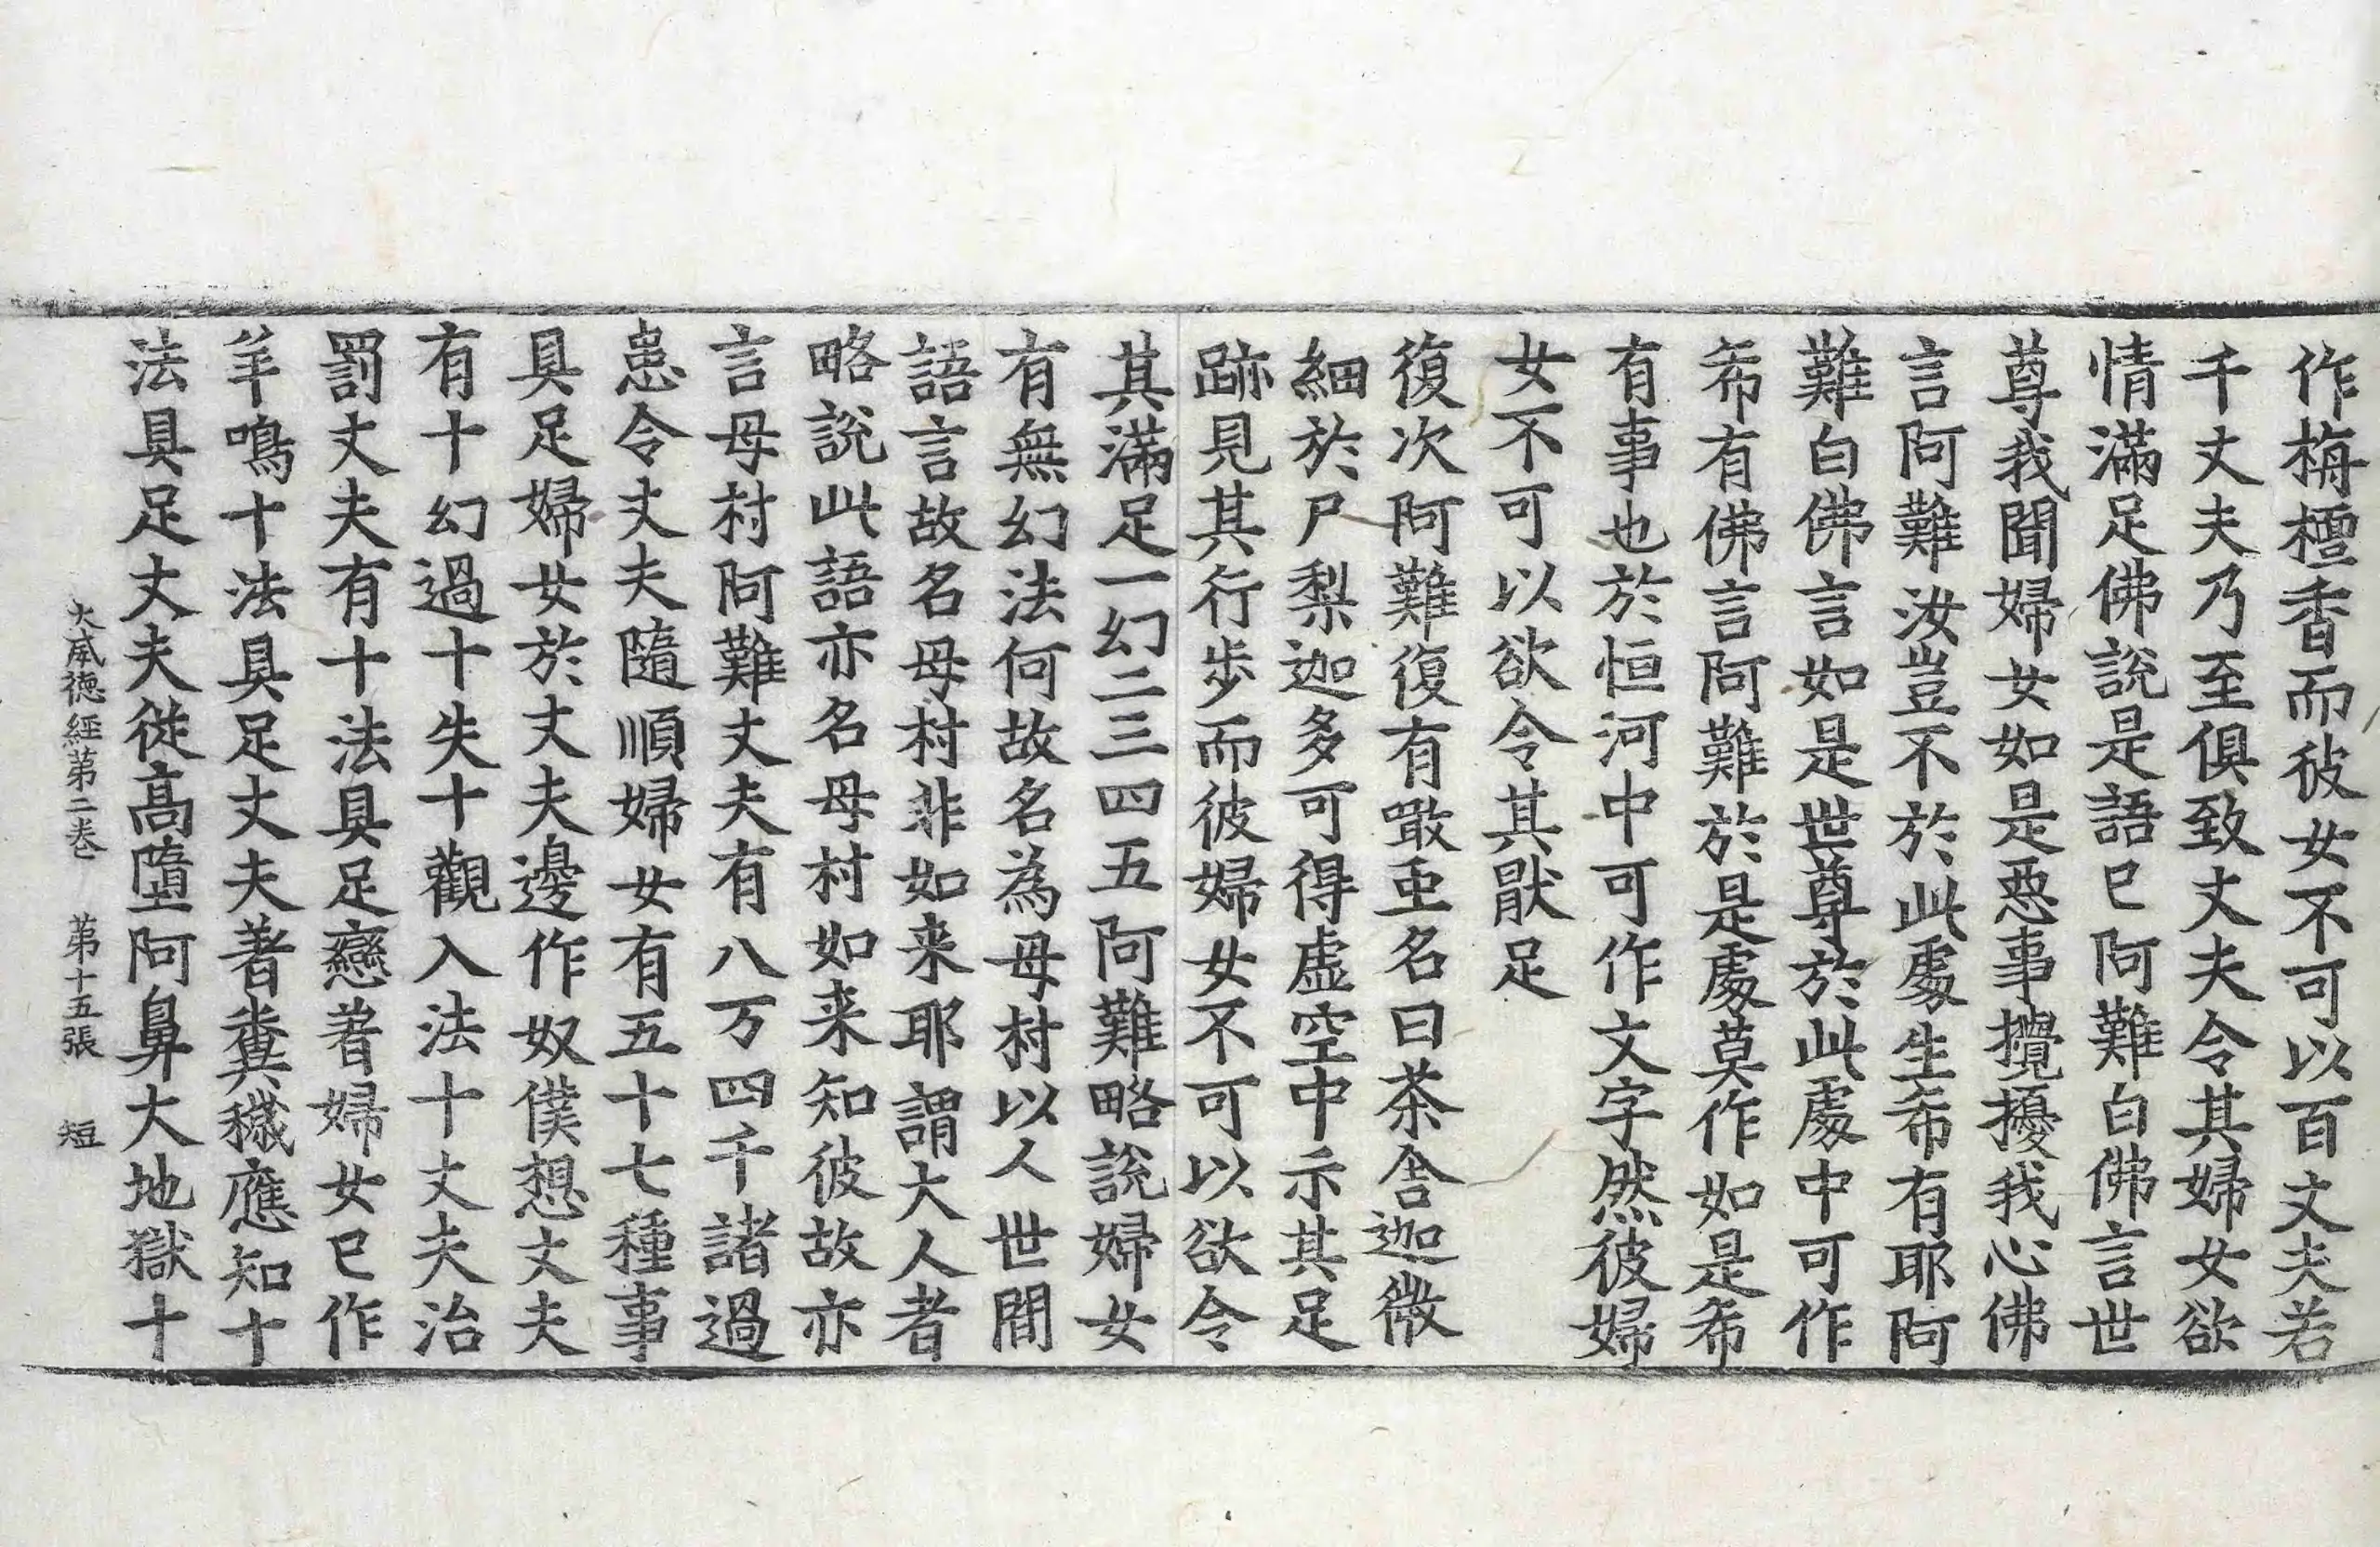 作栴檀香而彼女不可以百丈夫若
千丈夫乃至俱致丈夫令其婦女欲
情滿足佛說是語已阿難白佛言世
尊我聞婦女如是惡事攪擾我心佛
言阿難汝豈不於此處生希有耶阿
難白佛言如是世尊於此處中可作
希有佛言阿難於是處莫作如是希
有事也於恒河中可作文字然彼婦
女不可以欲令其猒足
復次阿難復有噉䖝名曰荼舍迦微
細於尸梨迦多可得虛空中示其足
跡見其行步而彼婦女不可以欲令
其滿足一幻二三四五阿難略說婦女
有無幻法何故名為母村以人世間
語言故名母村非如来耶謂大人者
略說此語亦名母村如来知彼故亦
言母村阿難丈夫有八万四千諸過
患令丈夫隨順婦女有五十七種事
具足婦女於丈夫邊作奴僕想丈夫
有十幻過十失十觀入法十丈夫治
罰丈夫有十法具足戀著婦女已作
羊鳴十法具足丈夫著糞穢應知十
法具足丈夫從高墮阿鼻大地獄十
大威德經第二卷 第十五張 短